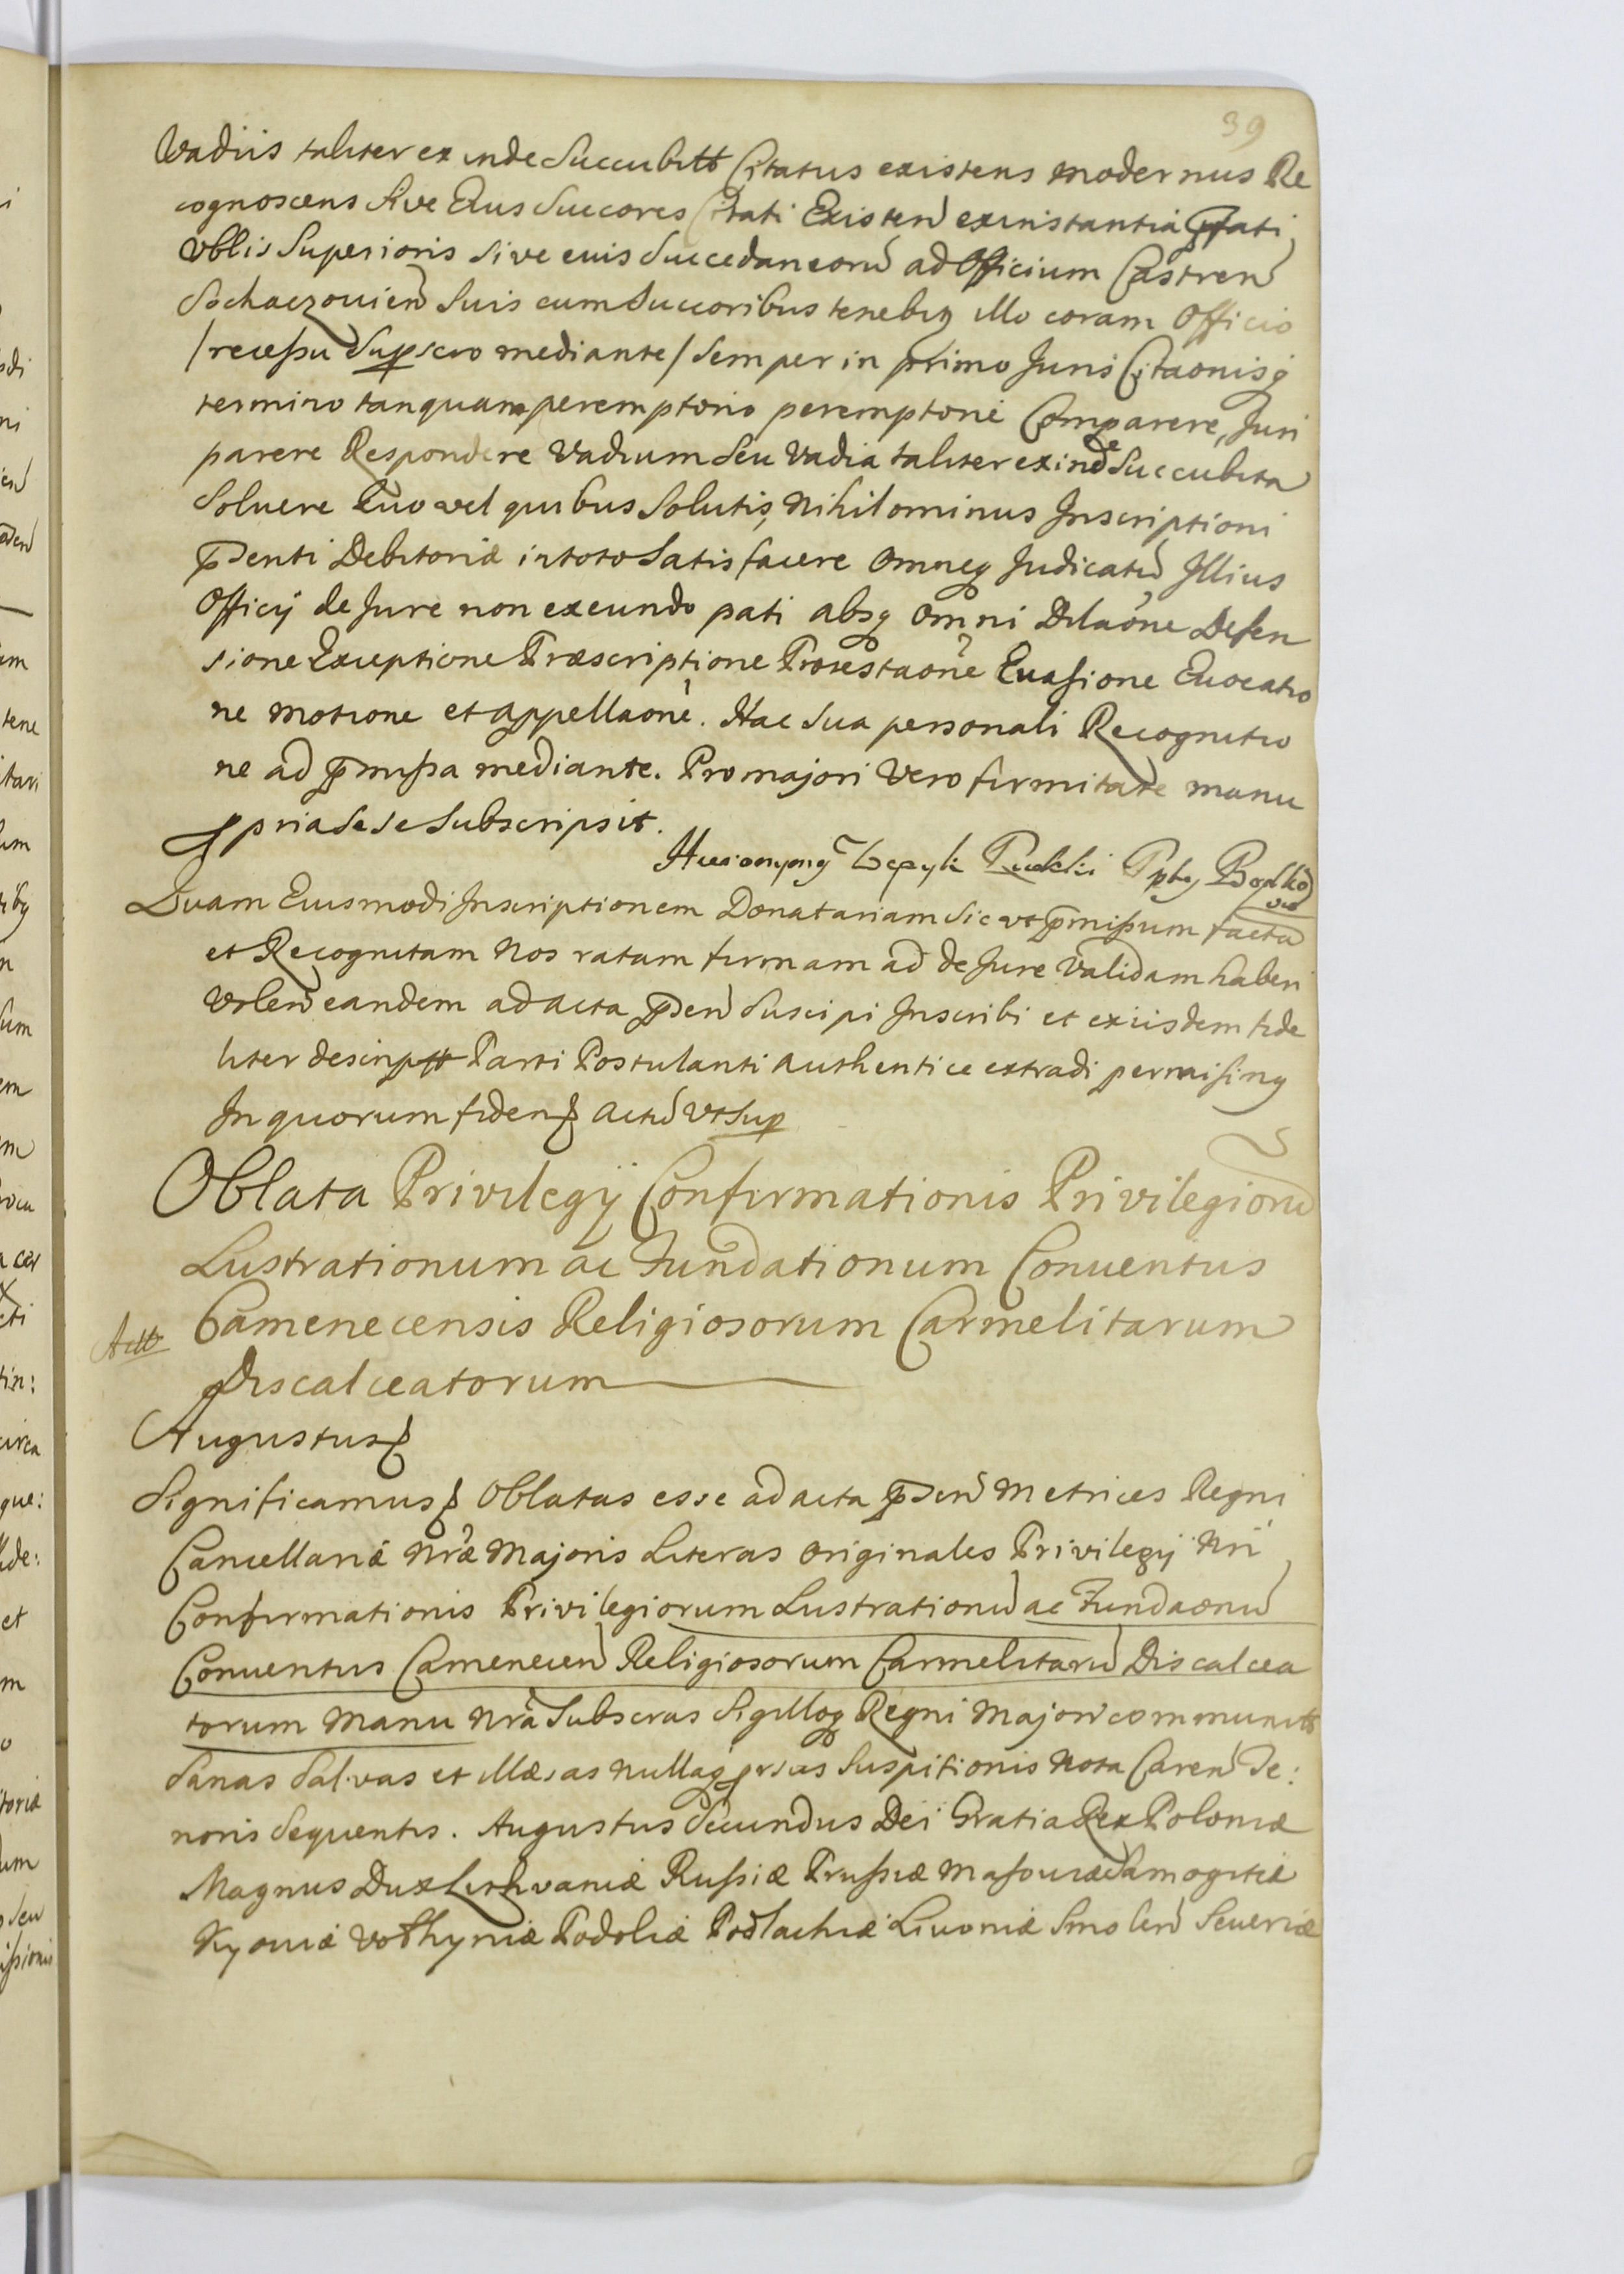 39
Vadiis taliter exinde Succubitt Citatus existens modernus Re
cognoscens Sive Eius Succores Citati Existen exinstantia pfati
Vblis Superioris sive euis Succedaneoru ad Officium Castren
Sochaczouien Suis cum Succoribus tenebiq illo coram Officio
/recessu Supscro mediante/ Semper in primo Juris Citaonisq
termino tanquam peremptorio peremptorie Comparere, Juri
parere Respondere Vadium Seu Vadia taliter exinde Succubita
Soluere Quo vel quibus Solutis, Nihilominus Inscriptioni
pdenti Debitoriæ in toto Satisfacere Omneq Judicatu Illius
Officij de Jure non exeundo pati absq omni Dilaone Defen
sione Exceptione Præscriptione Protestaone Euasione Euocatio
ne Motione et Appellaone. Hac Sua personali Recognitio
ne ad pmissa mediante. Pro majori Vero firmitate manu
ppria Se Se Subscripsit.
Quam Eiusmodi Inscriptionem Donatariam Sic vt pmissum facta
et Recognitam Nos ratam firmam ad de Jure Validam haberi
Volen eandem ad Acta pden Suscipi Inscribi et exiisdem fide
liter descriptt Parti Postulanti Authentice extradi permisimq
In quorum fidem Actu vt Sup
Oblata Privilegij Confirmationis Privilegioru
Lustrationum ac Fundationum Conuentus
Camenecensis Religiosorum Carmelitarum
Discalceatorum
Augustus
Significamus Oblatas esse ad acta pden Metrices Regni
Cancellariæ Nræ Majoris Literas Originales Privilegij Nri
Confirmationis Privilegiorum Lustrationu ac Fundaonu
Conuentus Camenecen Religiosorum Carmelitaru Discalcea
torum Manu Nra Subscras Sigilloq Regni Majori communitt
Sanas Salvas et illæsas Nullaq prsus Suspitionis Nota Caren Te:
noris Sequentis. Augustus Secundus Dei Gratia Rex Poloniæ
Magnus Dux Lithvaniæ Russiæ Prussiæ Masouiæ Samogitiæ
Kyouiæ Volhyniæ Podoliæ Podlachiæ Liuoniæ Smolen Seueriæ